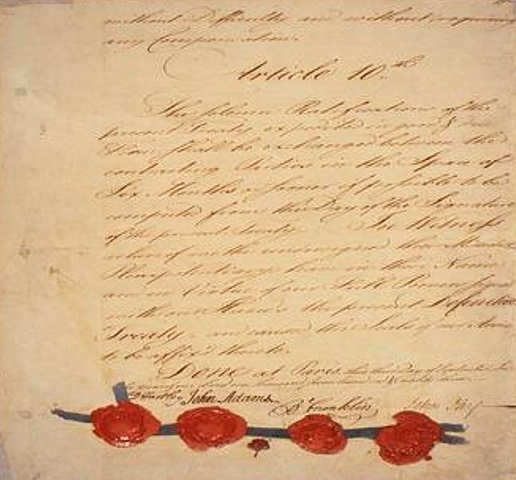 without Difficulty and without requiring
any Compensation.
Article 10.th
The solemn Ratifications of the
present Treaty expedited in good & due
Form shall be exchanged between the
contracting Parties in the Space of
Six Months or sooner if possible to be
computed from the Day of the Signature
of the present Treaty. In Witness
whereof we the undersigned their Ministers
Plenipotentiary have in their Name
and in Virtue of our Full Powers signed
with our Hands the present Definitive
Treaty, and caused the Seals of our Arms
to be affix'd thereto.
Done at Paris, this third Day of September
D Hartley John Adams B Franklin John Jay